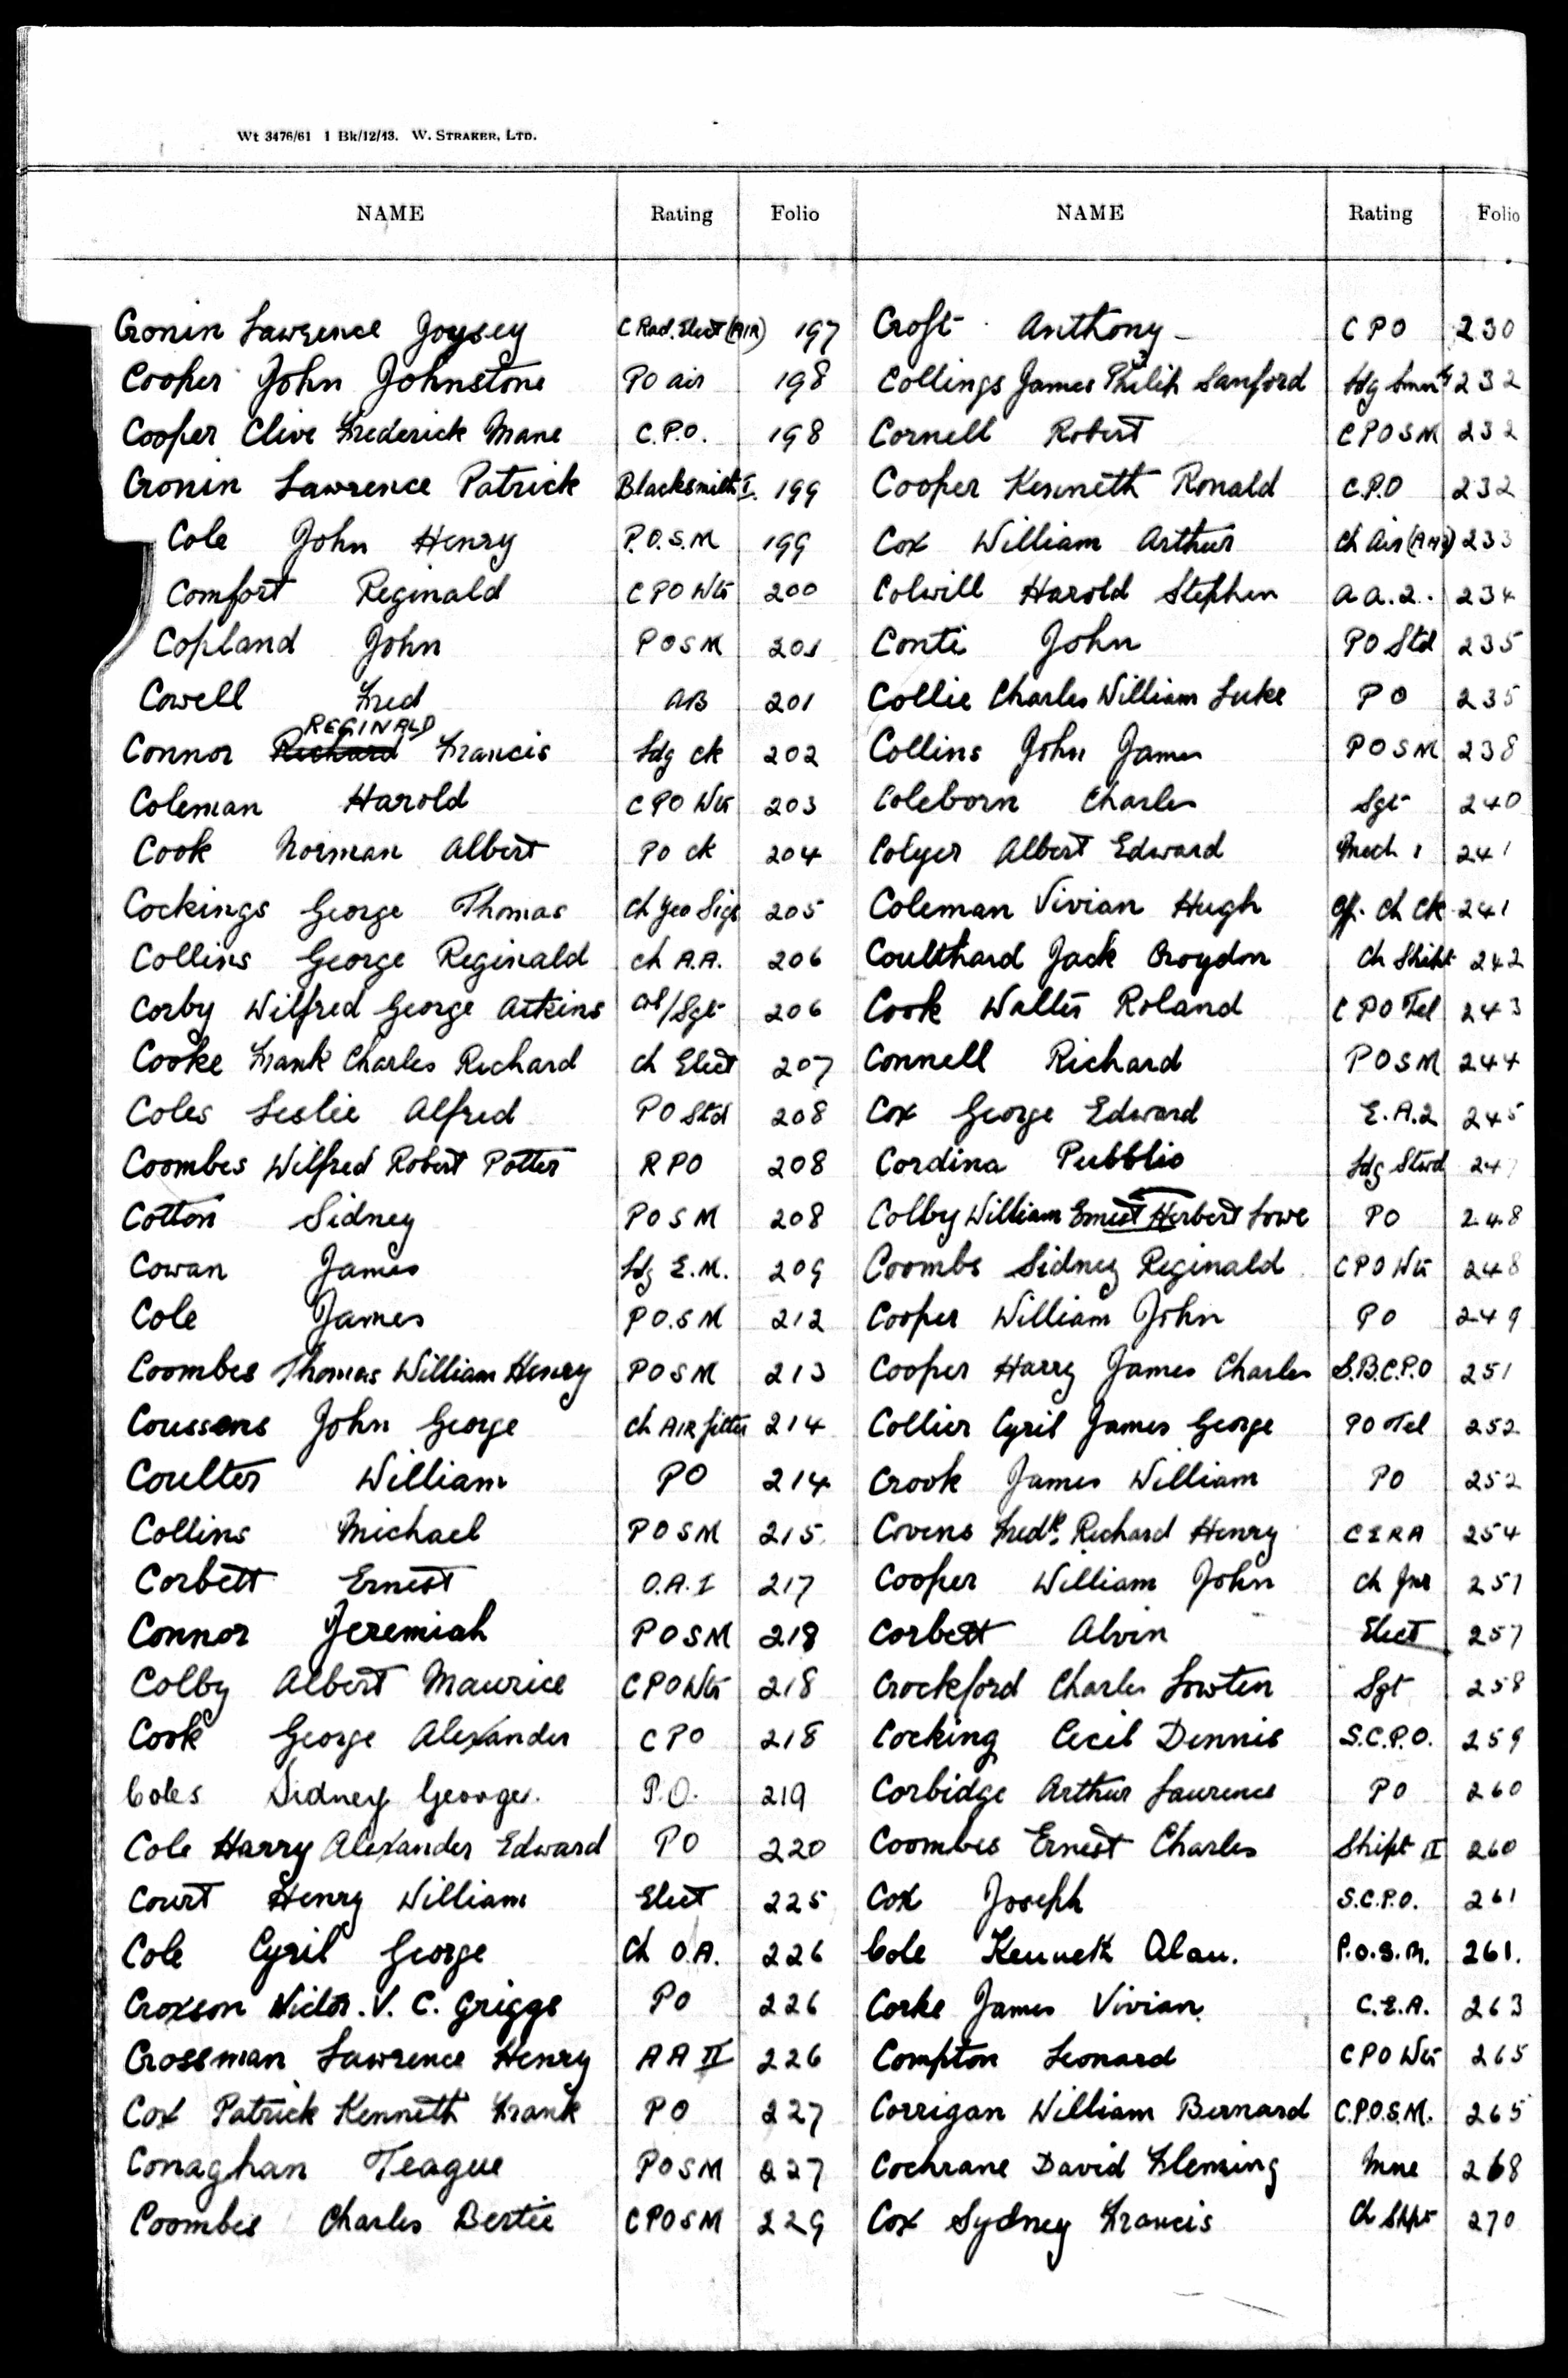 Wt 3476/61 1 Bk/12/43. W. STRAKER, LTD.
NAME Rating Folio
Cronin Lawrence Joysey C Rad. Elect (AIR) 197
Cooper John Johnstone PO air 198
Cooper Clive Frederick Mane C.P.O. 198
Cronin Lawrence Patrick Blacksmith I. 199
Cole John Henry P.O.S.M 199
Comfort Reginald CPO Wtr 200
Copland John POSM 201
Cowell Fred AB 201
REGINALD
Connor Richard Francis Ldg ck 202
Coleman Harold CPO Wtr 203
Cook Norman Albert PO ck 204
Cockings George Thomas Ch Yeo Sigs 205
Collins George Reginald Ch A.A. 206
Corby Wilfred George Atkins Col/Sgt 206
Cooke Frank Charles Richard Ch Elect 207
Coles Leslie Alfred PO Std 208
Coombes Wilfred Robert Potter RPO 208
Cotton Sidney POSM 208
Cowan James Ldg E.M. 209
Cole James PO.SM 212
Coombes Thomas William Henry POSM 213
Coussens John George Ch AIR fitter 214
Coulter William PO 214
Collins Michael POSM 215
Corbett Ernest O.A.I 217
Connor Jeremiah POSM 218
Colby Albert Maurice CPO Wtr 218
Cook George Alexander CPO 218
Coles Sidney George. P.O. 219
Cole Harry Alexander Edward PO 220
Court Henry William Elect 225
Cole Cyril George Ch O.A. 226
Croxson Victor. V. C. Griggs PO 226
Crossman Lawrence Henry AA II 226
Cox Patrick Kenneth Frank PO 227
Conaghan Teague POSM 227
Coombes Charles Bertie CPOSM 229
NAME Rating Folio
Croft Anthony CPO 230
Collings James Philip Sanford Ldg 232
Cornell Robert CPOSM 232
Cooper Kenneth Ronald C.P.O 232
Cox William Arthur Ch Air 233
Colwill Harold Stephen AA.2. 234
Conti John PO Std 235
Collie Charles William Luke PO 235
Collins John James POSM 238
Coleborn Charles Sgt 240
Colyer Albert Edward Mech 1 241
Coleman Vivian Hugh Off. Ch Ck 241
Coulthard Jack Croydon Ch Shipt 242
Cook Walter Roland CPO Tel 243
Connell Richard POSM 244
Cox George Edward E.A.2 245
Cordina Pubblio Ldg Stwd 247
Colby William Ernest Herbert Lowe PO 248
Coombs Sidney Reginald CPO Wtr 248
Cooper William John PO 249
Cooper Harry James Charles S.B.C.P.O 251
Collier Cyril James George PO Tel 252
Crook James William PO 252
Covens Fredk. Richard Henry CERA 254
Cooper William John Ch Jnr 257
Corbett Alvin Elect 257
Crockford Charles Lowten Sgt 258
Cocking Cecil Dennis S.C.P.O. 259
Corbidge Arthur Laurence PO 260
Coombes Ernest Charles Shipt II 260
Cox Joseph S.C.P.O. 261
Cole Kenneth Alan. P.O.S.M. 261.
Corke James Vivian. C.E.A. 263
Compton Leonard CPO Wtr 265
Corrigan William Bernard C.P.O.S.M. 265
Cochrane David Fleming Mne 268
Cox Sydney Francis Ch Shpt 270